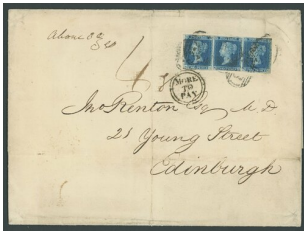 Above 3 oz
4
MORE
TO
PAY
Jno Renton Esq M. D
21 Young Street
Edinburgh